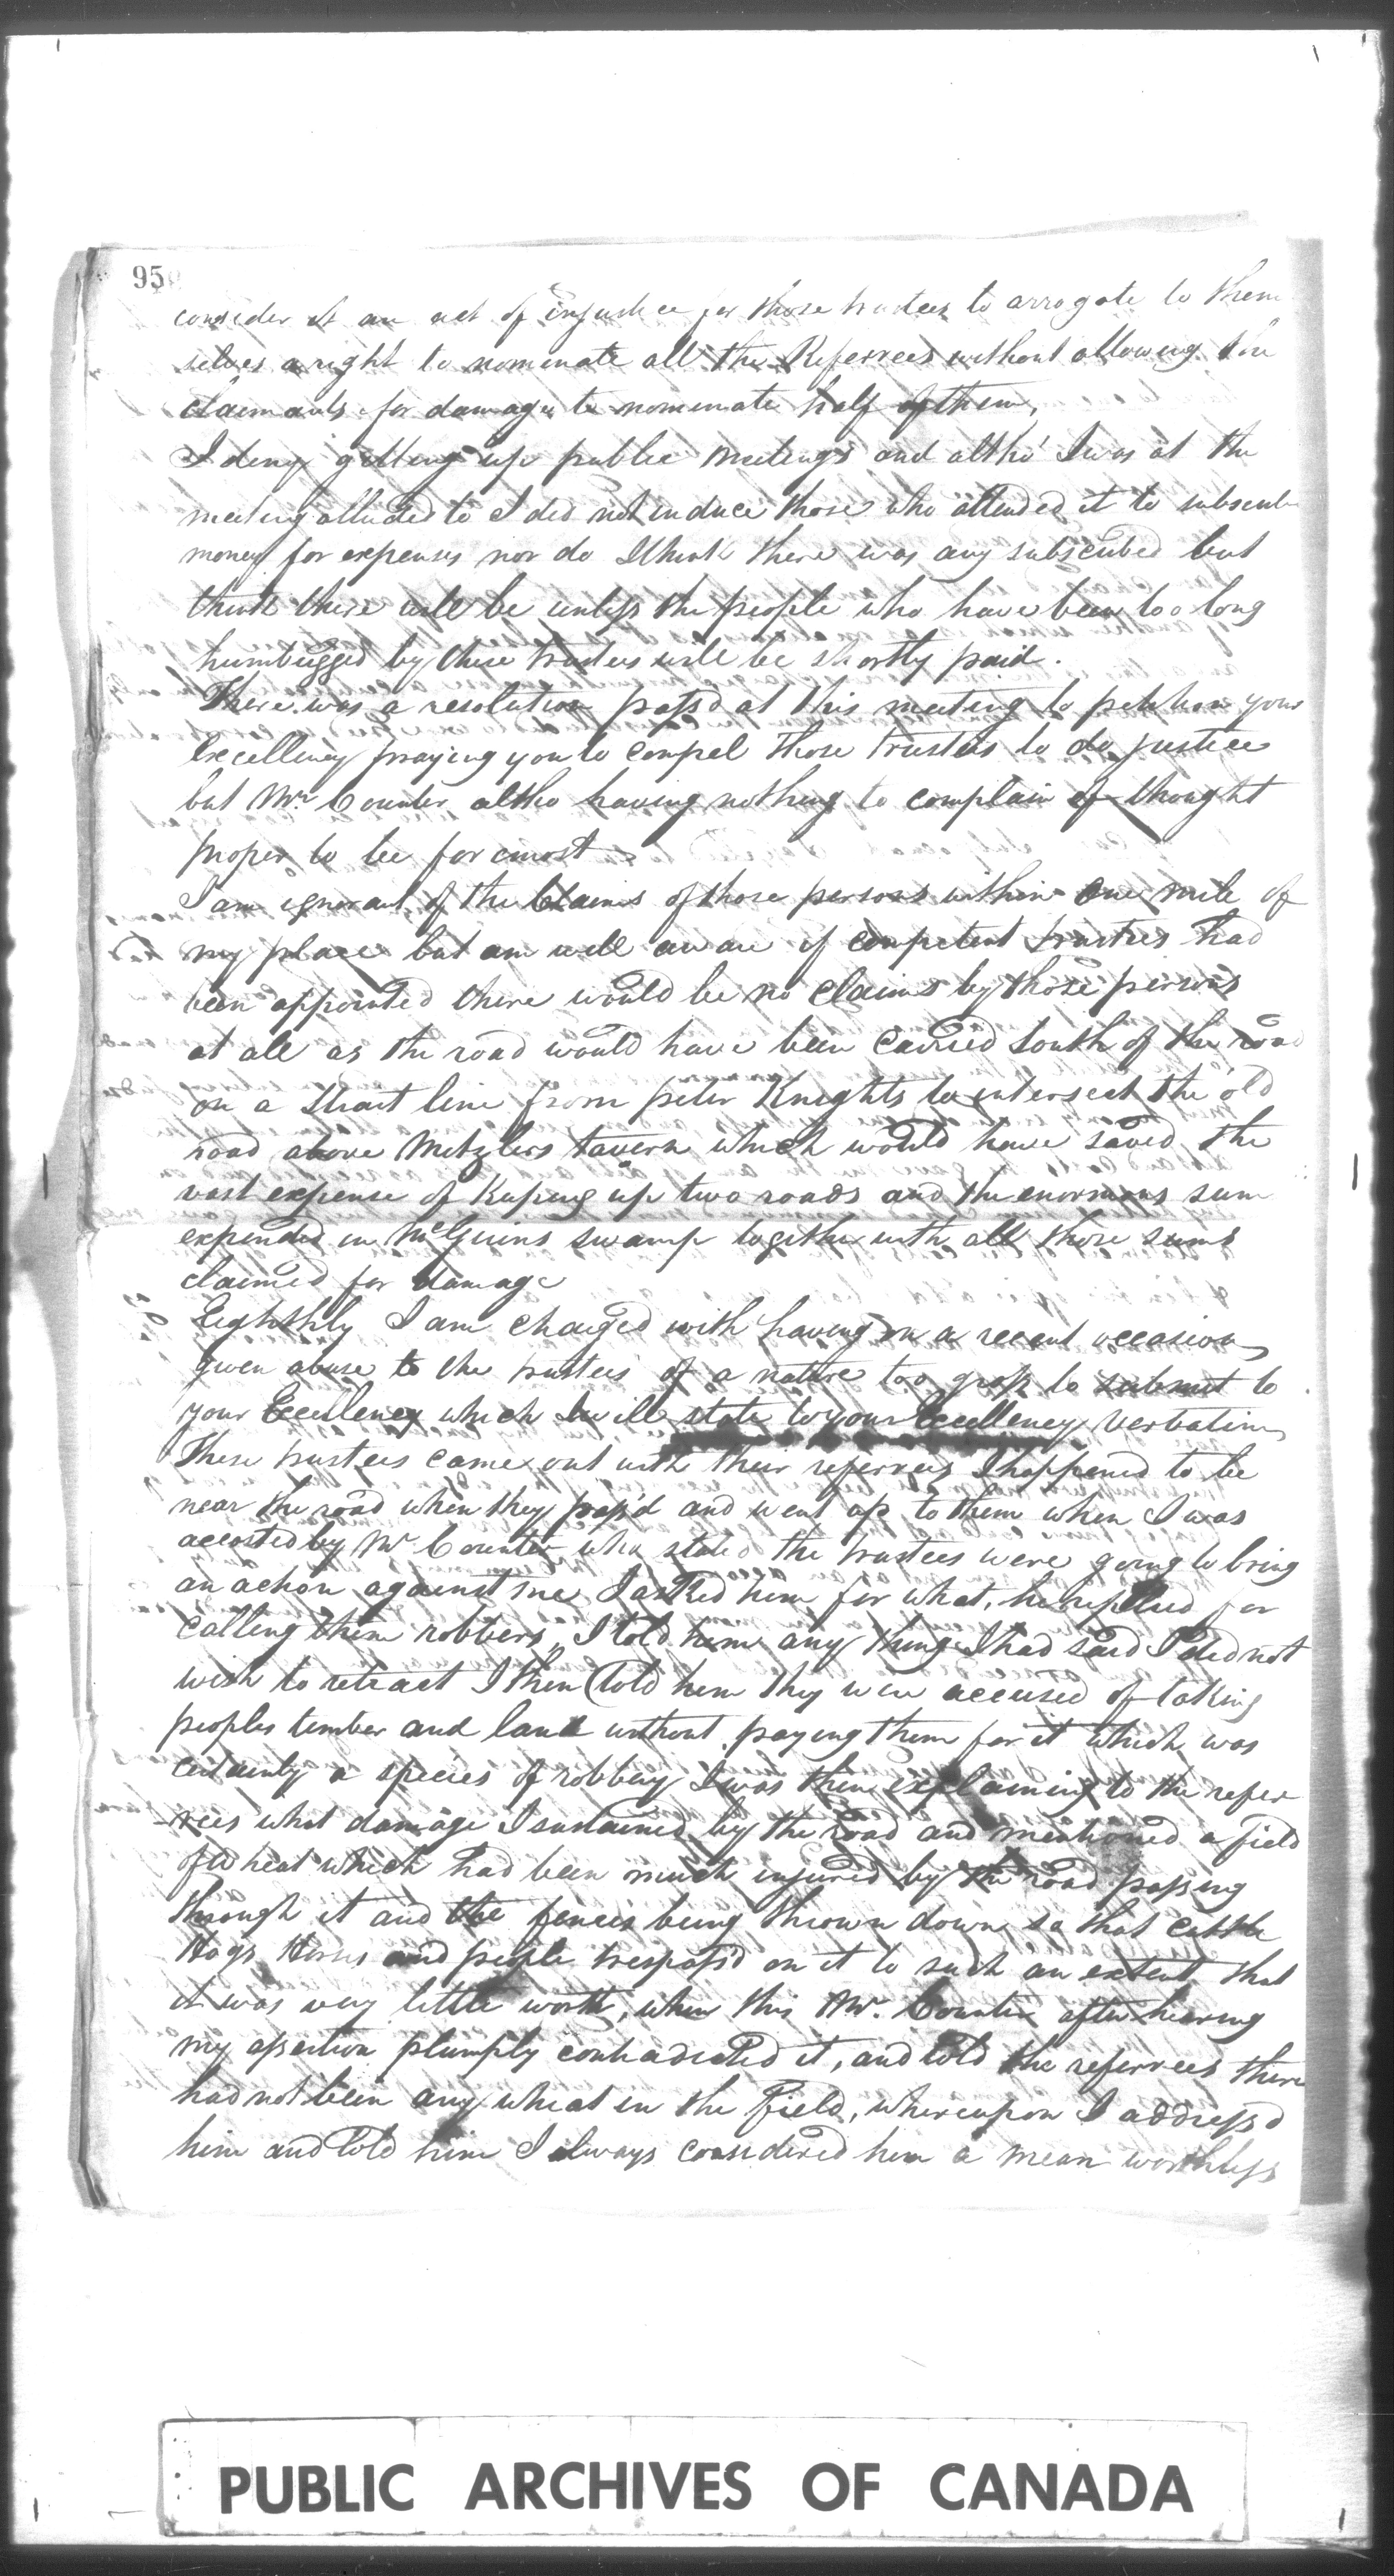 95
consider it an act of injustice for those trustees to arrogate to them
selves a right to nominate all the Referrees without allowing the
claimants for damage to nominate half of them,
I deny getting up public meetings and altho' I was at the
meeting alluded to I did not induce those who attended it to subscribe
money for expenses nor do I think there was any subscribed but
think there will be unless the people who have been too long
humbugged by these trustees will be shortly paid.
There was a resolution pass'd at this meeting to petition your
Excellency praying you to compel those trustees to do justice
but Mr Counter altho having nothing to complain of thought
proper to be foremost
I am ignorant of the Claims of those persons within One mile of
my place but am well aware if competent trustees had
been appointed there would be no claims by those persons
at all as the road would have been carried South of the road
on a Strait line from peter Knights to intersect the old
road above Metzlers tavern which would have saved the
vast expense of Keeping up two roads and the enormous sum
expended in McGuins swamp together with all those sums
claimed for damage
Eighthly I am charged with having on a recent occasion
given abuse to the trustees of a nature too gross to submit to
your Excellency which I will state to your Excellency verbatim
These trustees came out with their referrees I happened to be
near the road when they pass'd and went up to them when I was
accosted by Mr Counter who stated the trustees were going to bring
an action against me I asked him for what, he replied for
calling them robbers, I told him any thing I had said I did not
wish to retract I then told him they were accused of taking
peoples timber and land without paying them for it which was
certainly a species of robbery I was then explaining to the refer
-rees what damage I sustained by the road and mentioned a field
of Wheat which had been much injured by the road passing
through it and the fences being thrown down so that cattle
Hogs Horses and people trespass'd on it to such an extent that
it was very little worth, when this Mr. Counter after hearing
my assertion plumply contradicted it, and told the referrees there
had not been any wheat in the field, whereupon I address'd
him and told him I always considered him a mean worthless
PUBLIC ARCHIVES OF CANADA